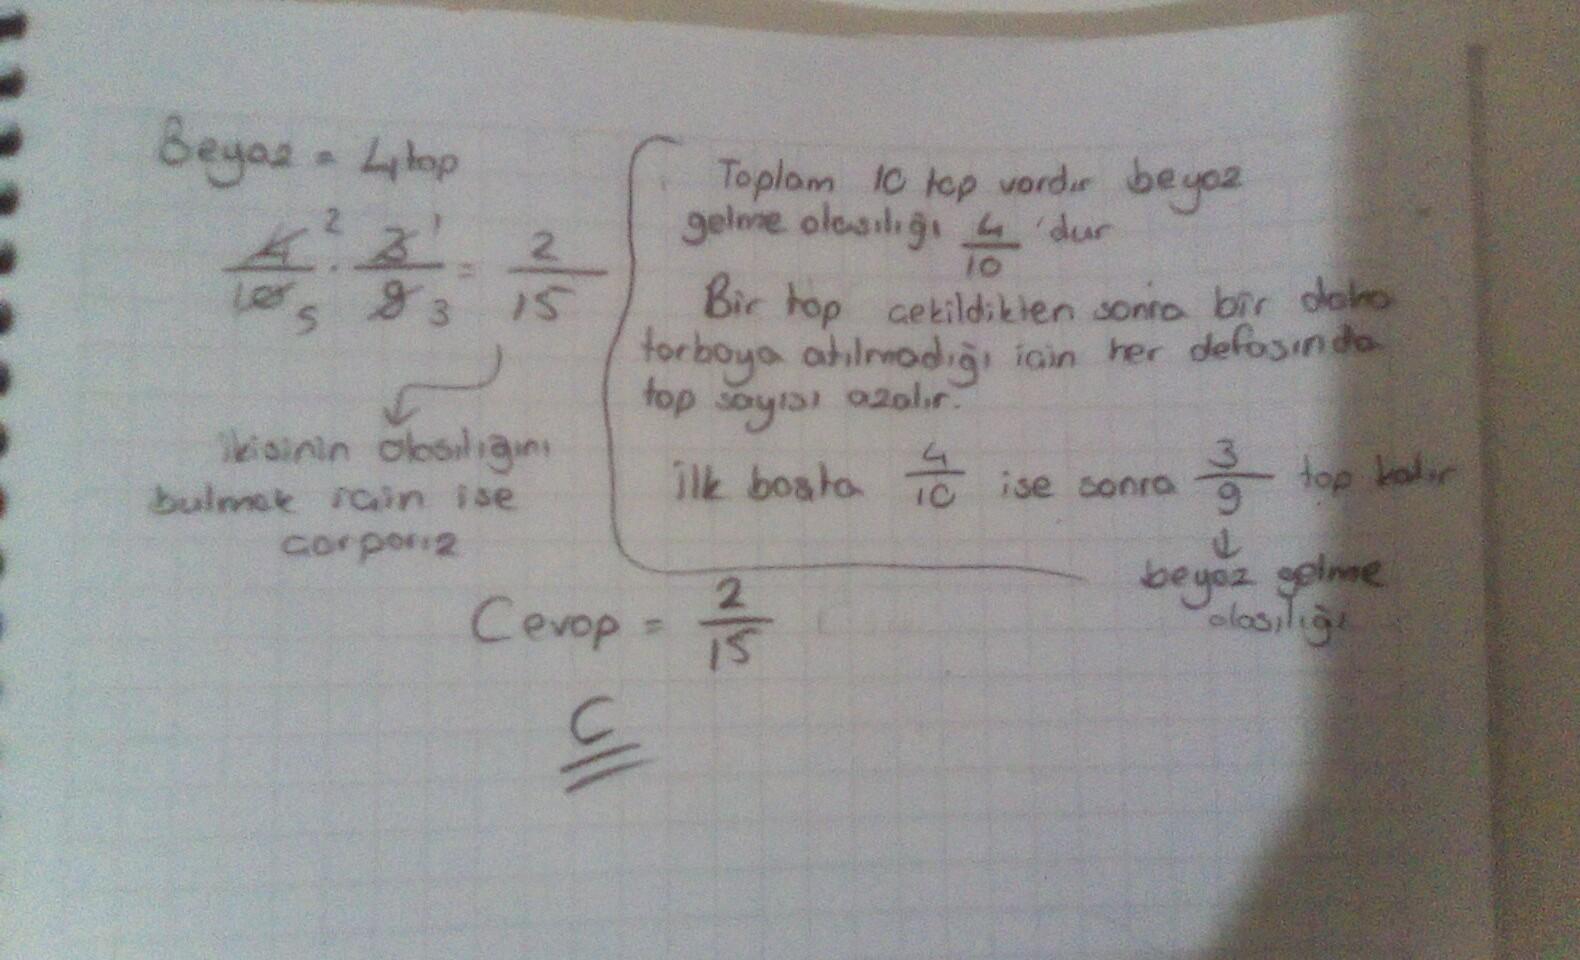 Beyaz = 4 top
4/10 2/5 . 3/9 1/3 = 2/15
ikisinin olasılığını
bulmak için ise
çarparız
Toplam 10 top vardır beyaz
gelme olasılığı 4/10 'dur
Bir top çekildikten sonra bir daha
torbaya atılmadığı için her defasında
top sayısı azalır.
ilk başta 4/10 ise sonra 3/9 top kalır
beyaz gelme
olasılığı
Cevap = 2/15
C